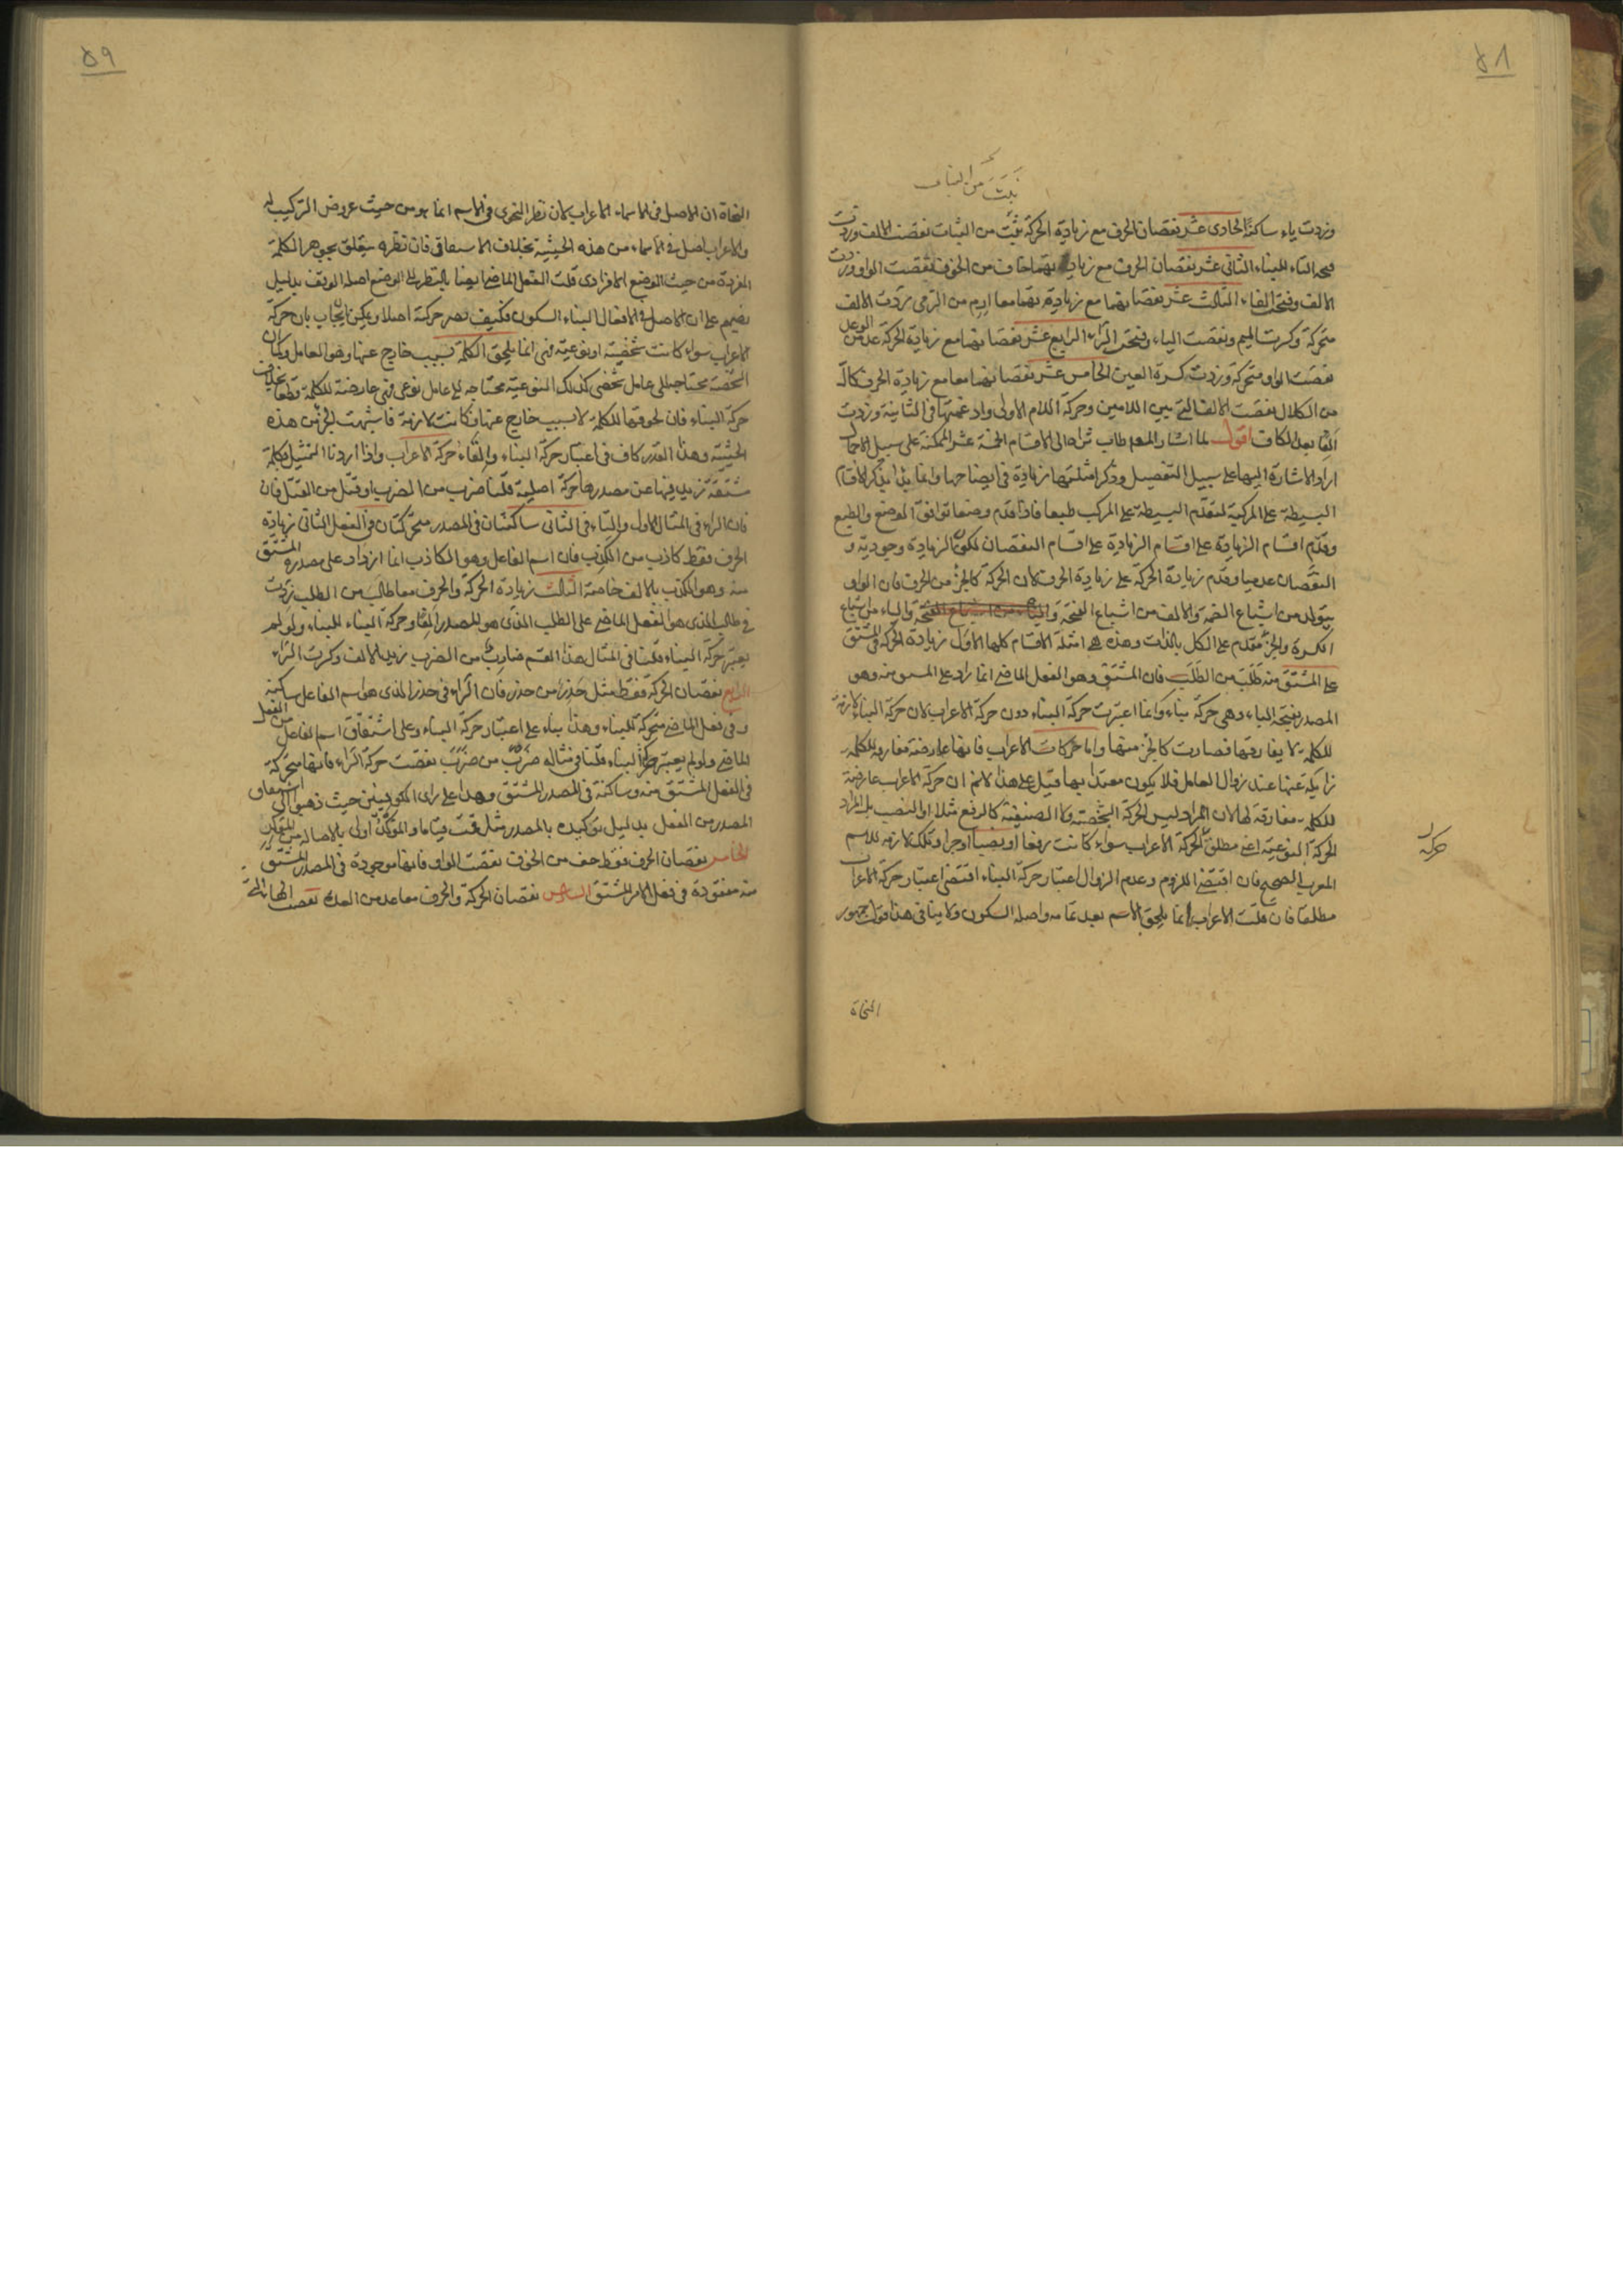 ٥٨
نبت من النبات
وزدت ياء ساكنة الحادى عشر نقصان الحرف مع زيادة الحركة نبت من النبات نقصت الالف وزدت
فتحة التاء للبناء الثانى عشر نقصان الحرف مع زيادتهما خاف من الخوف نقصت الواو وزدت
الالف وفتحة الفاء الثالث عشر نقصانهما مع زيادتهما معا ارم من الرمى زدت الالف
متحركة وكسرت الميم ونقصت الياء وفتحة الراء الرابع عشر نقصانهما مع زيادة الحركة عد من الوعد
نقصت الواو متحركة وزدت كسرة العين الخامس عشر نقصانهما معا مع زيادة الحرف كالّ
من الكلال نقصت الالف التى بين اللامين وحركة اللام الاولى وادغمتها فى الثانية وزدت
الفا بعد الكاف اقول لما اشار المص طاب ثراه الى الاقسام الخمسة عشر الممكنة على سبيل الاجمال
اراد الاشارة اليها على سبيل التفصيل وذكر امثلتها زيادة فى ايضاحها وانما بدا بذكر الاقسام
البسيطة على المركبة لتقدم البسيطة على المركب طبعا فاذا قدم وضعا توافق الوضع والطبع
وقدم اقسام الزيادة على اقسام النقصان لكون الزيادة وجودية و
النقصان عدميا وقدم زيادة الحركة على زيادة الحرف لان الحركة كالجزء من الحرف فان الواو
يتولد من اشباع الضمة والالف من اشباع الفتحة والياء من اشباع
الكسرة والجزء مقدم على الكل بالذات وهذه هى امثلة الاقسام كلها الاول زيادة الحركة فى المشتق
على المشتق منه طلب من الطلب فان المشتق وهو الفعل الماضى انما زاد على المشتق منه وهو
المصدر بفتحة الباء وهى حركة بناء وانما اعتبرت حركة البناء دون حركة الاعراب لان حركة البناء لازمة
للكلمة لا يفارقها فصارت كالجزء منها واما حركات الاعراب فانها عارضة مفارقة للكلمة
زايلة عنها عند زوال العامل فلا يكون معتدا بها قيل على هذا لانم ان حركة الاعراب عارضة
للكلمة مفارقة لها لان المراد ليس الحركة الشخصية ولا الصنفية كالرفع مثلا او النصب بل المراد
الحركة النوعية اعنى مطلق الحركة الاعراب سواء كانت رفعا او نصبا او جرا وتلك لازمة للاسم
المعرب الصحيح فان اقتضى اللزوم وعدم الزوال اعتبار حركة البناء اقتضى اعتبار حركة الاعراب
مطلقا فان قلت الاعراب انما يلحق الاسم بعد تمامه واصله السكون ولا ينافى هذا قول جمهور
النحاة
حركة
٥٩
النحاة ان الاصل فى الاسماء الاعراب لان نظر النحوى فى الاسم انما هو من حيث عروض التركيب له
والاعراب اصل فى الاسماء من هذه الحيثية بخلاف الاشتقاقى فان نظره يتعلق بجوهر الكلمة
المفردة من حيث الوضع الافرادى قلت الفعل الماضى ايضا بالنظر الى الوضع اصله الوقف بدليل
نصهم على ان الاصل فى الافعال البناء السكون فكيف تصير حركته اصلا ويمكن ان يجاب بان حركة
الاعراب سواء كانت شخصية او نوعية فهى انما يلحق الكلمة بسبب خارج عنها وهو العامل وكما ان
الشخصية محتاجة الى عامل شخصى كذلك النوعية محتاجة الى عامل نوعى فهى عارضة للكلمة قطعا بخلاف
حركة البناء فان لحوقها للكلمة لا بسبب خارج عنها فكانت لازمة فاشبهت الجزء من هذه
الحيثية وهذا القدر كاف فى اعتبار حركة البناء والقاء حركة الاعراب واذا اردنا التمثيل بكلمة
مشتقة زيد فيها عن مصدرها حركة اصلية قلنا ضرب من الضرب او قتل من القتل فان
فان الراء فى المثال الاول والتاء فى الثانى ساكنتان فى المصدر متحركتان فى الفعل الثانى زيادة
الحرف فقط كاذب من الكذب فان اسم الفاعل وهو الكاذب انما ازداد على مصدره المشتق
منه وهو الكذب بالالف خاصة الثالث زيادة الحركة والحرف معا طالب من الطلب زدت
فى طالب الذى هو الفعل الماضى على الطلب الذى هو المصدر الفا وحركة البناء للبناء ولو لم
يعتبر حركة البناء قلنا فى المثال هذا القسم ضارب من الضرب زيد الالف وكسرت الراء
الرابع نقصان الحركة فقط مثل حذر من حذر فان الراء فى حذر الذى هو اسم الفاعل ساكنة
وفى فعل الماضى متحركة للبناء وهذا بناء على اعتبار حركة البناء وعلى اشتقاق اسم الفاعل من الفعل
الماضى ولو لم يعتبر حركة البناء قلنا فى مثاله ضرب من ضرب نقصت حركة الراء فانها متحركة
فى الفعل المشتق منه وساكنة فى المصدر المشتق وهذا على راى الكوفيين حيث ذهبوا الى اشتقاق
المصدر من الفعل بدليل توكيده بالمصدر مثل قمت قياما والمؤكد اولى بالاصالة من المؤكد
الخامس نقصان الحرف فقط خف من الخوف نقصت الواو فانها موجودة فى المصدر المشتق
منه مفقودة فى فعل الامر المشتق السادس نقصان الحركة والحرف معا عد من العدة نقصت